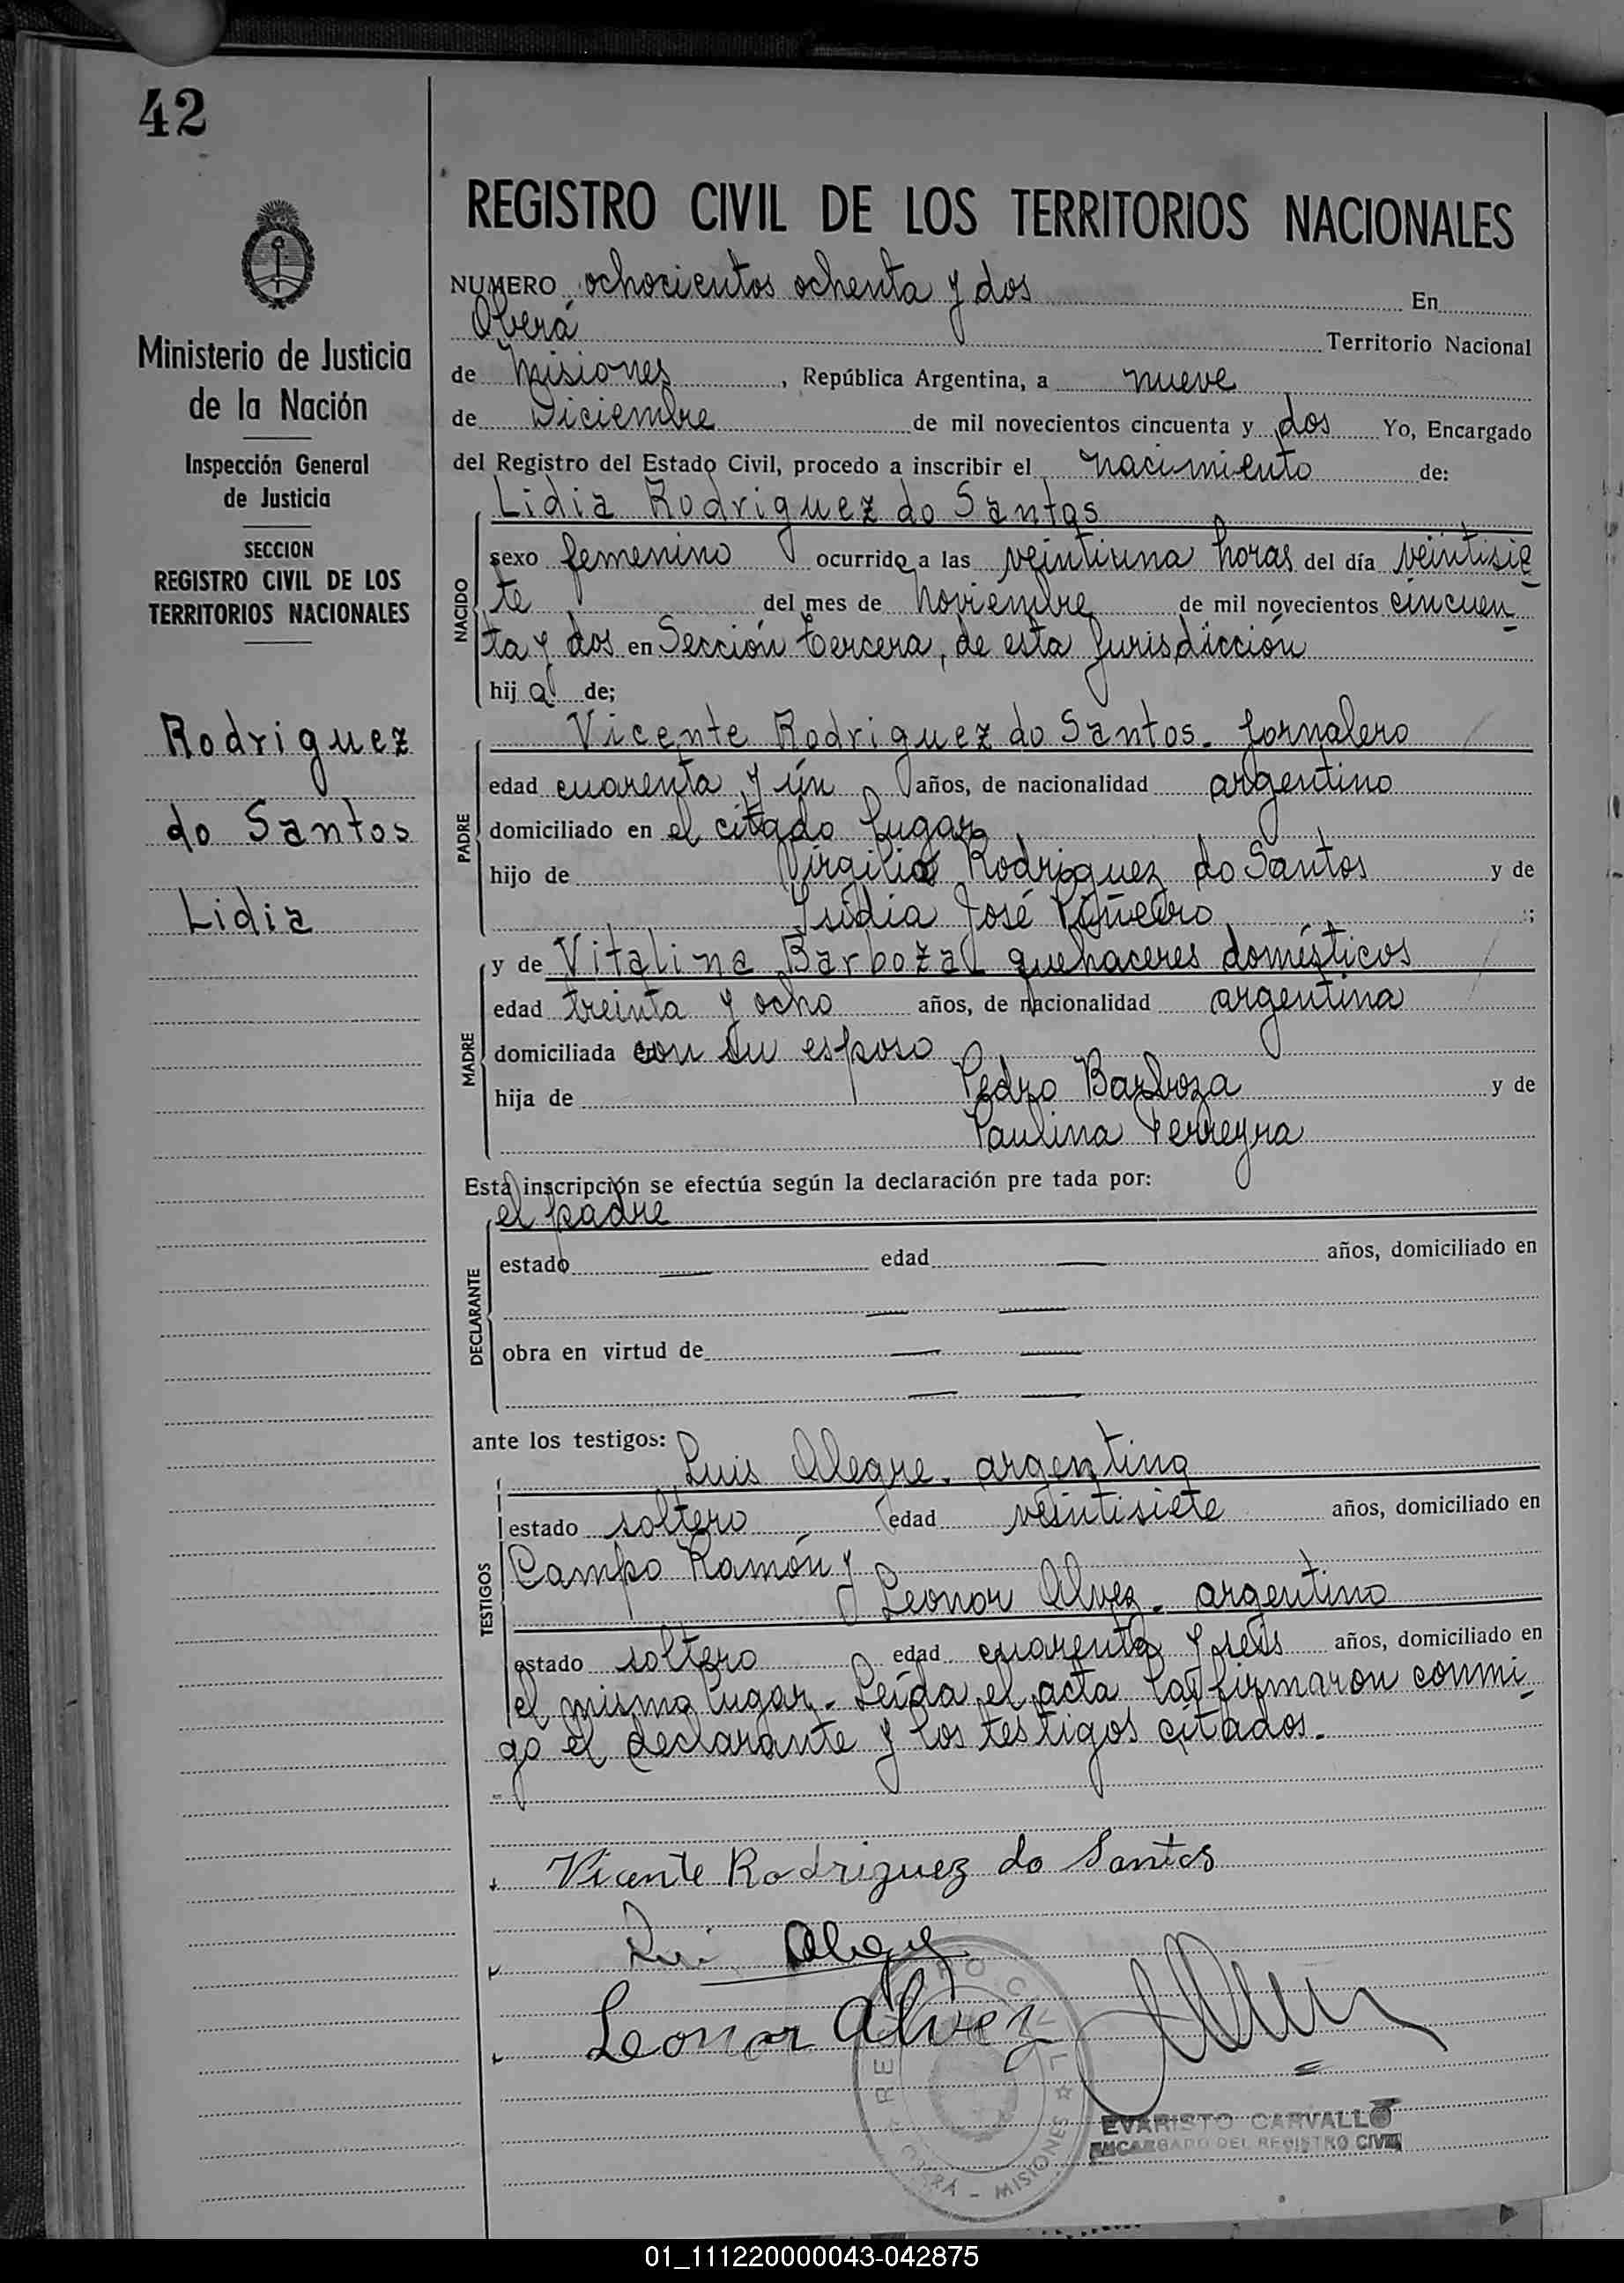 42
REGISTRO CIVIL DE LOS TERRITORIOS NACIONALES
NUMERO ochocientos ochenta y dos En
Oberá Territorio Nacional
de Misiones, República Argentina, a nueve
de Diciembre de mil novecientos cincuenta y dos Yo, Encargado
del Registro del Estado Civil, procedo a inscribir el nacimiento de:
Ministerio de Justicia
de la Nación
Inspección General
de Justicia
SECCION
REGISTRO CIVIL DE LOS
TERRITORIOS NACIONALES
Rodriguez
do Santos
Lidia
NACIDO
Lidia Rodriguez do Santos
sexo femenino ocurrido a las veintiuna horas del día veintisie
te del mes de Noviembre de mil novecientos cincuen
ta y dos en Sección tercera, de esta Jurisdicción
hija de;
PADRE
Vicente Rodriguez do Santos. Jornalero
edad cuarenta y ún años, de nacionalidad argentino
domiciliado en el citado lugar
hijo de Virgilio Rodriguez do Santos y de
José ;
MADRE
y de Vitalina Barboza quehaceres domésticos
edad treinta y ocho años, de nacionalidad argentina
domiciliada con su esposo
hija de Pedro Barboza y de
Paulina Ferreyra
Esta inscripción se efectúa según la declaración pre tada por:
DECLARANTE
el padre
estado edad años, domiciliado en
obra en virtud de
ante los testigos:
TESTIGOS
Luis Alegre. argentino
estado soltero edad veintisiete años, domiciliado en
Campo Ramón y
Leonor Alvez. argentino
estado soltero edad cuarenta y seis años, domiciliado en
el mismo lugar. Leída el acta la firmaron conmi
go el declarante y los testigos citados.
Vicente Rodriguez do Santos
Leonor Alvez
OBERÁ - MISIONES
EVARISTO CARVALLO
ENCARGADO DEL REGISTRO CIVIL
01_111220000043-042875